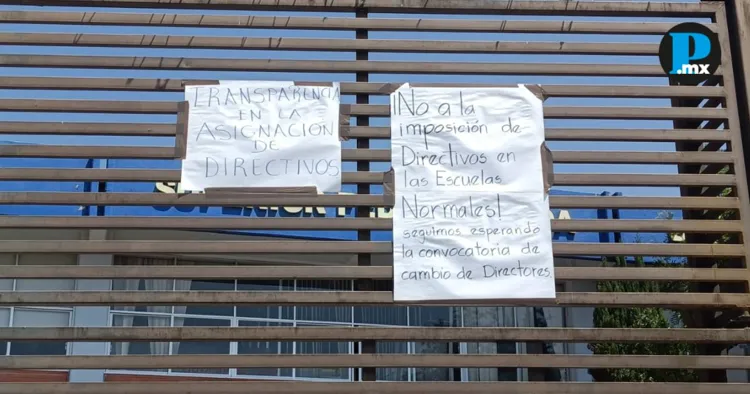 TRANSPARENCIA
EN LA
ASIGNACIÓN
DE
DIRECTIVOS
¡No a la
imposición de
Directivos en
las Escuelas
Normales!
seguimos esperando
la convocatoria de
cambio de Directores.
P.mx